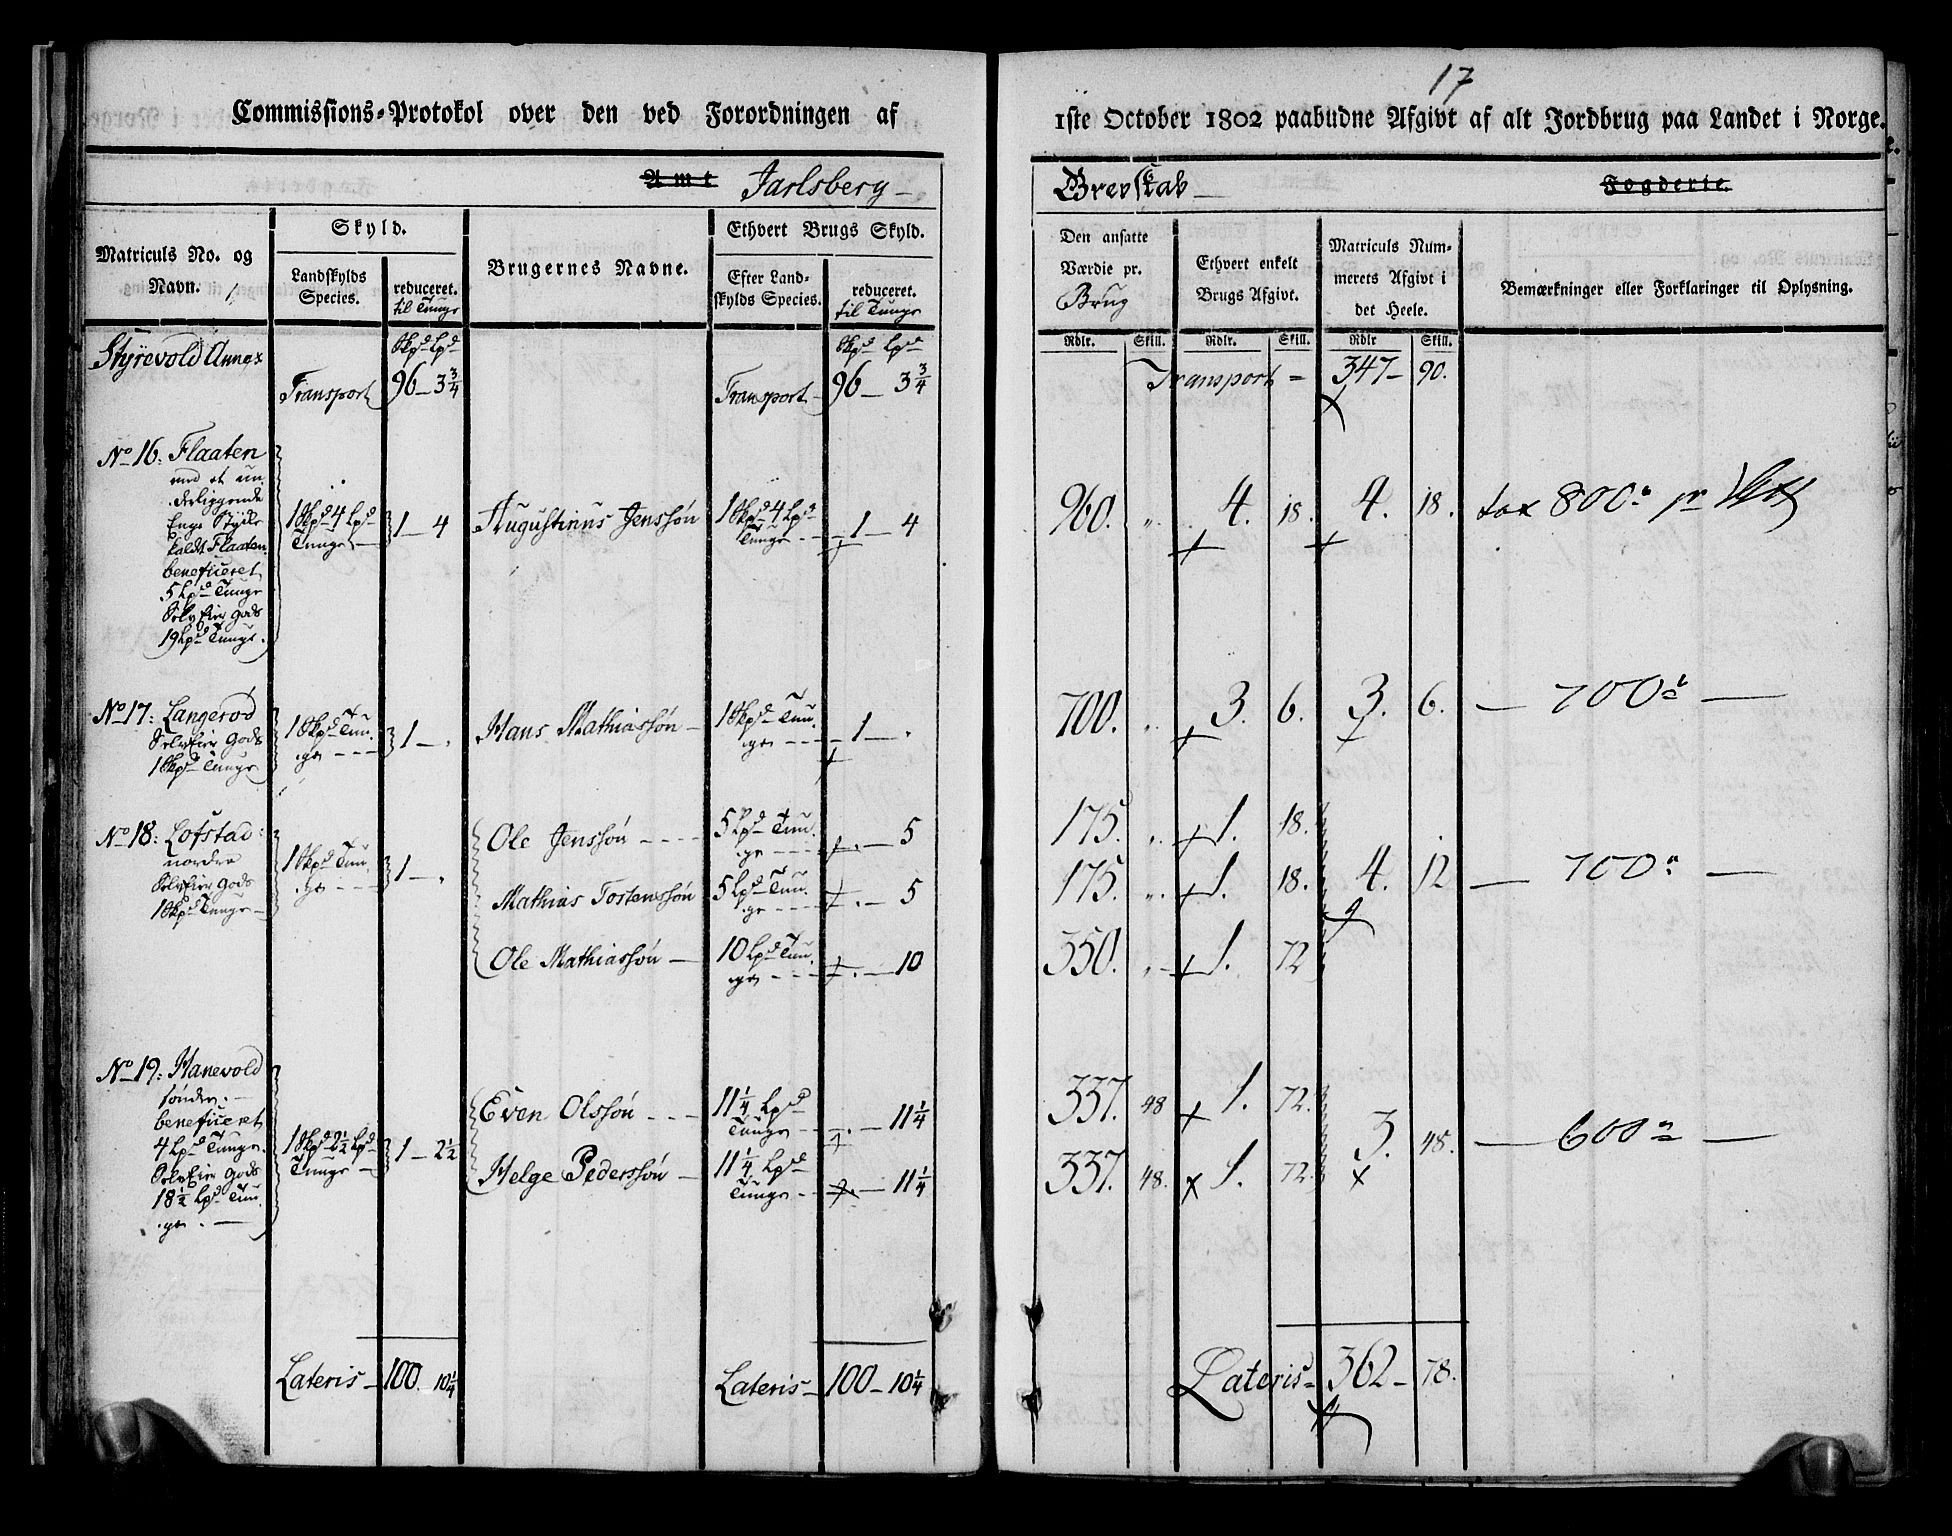 17
Commissions-Protokol over den ved Forordningen af
1ste October 1802 paabudne Afgivt af alt Jordbrug paa Landet i Norge.
Amt Jarlsberg
Grevskab Fogderie.
Matriculs No. og Navn.
Skyld.
Landskylds Species.
reduceret. til Tunge
Brugernes Navne.
Ethvert Brugs Skyld.
Efter Landskylds Species.
reduceret. til Tunge
Den ansatte Værdie pr. Brug
Ethvert enkelt Brugs Afgivt.
Matriculs Nummerets Afgivt i det Heele.
Bemærkninger eller Forklaringer til Oplysning.
Rdlr. Skill. Rdlr. Skill. Rdlr Skill.
Styrevold Annex
Skpd Lpd Skpd Lpd
Transport 96 - 3 3/4 Transport - 96 - 3 3/4 Transport = 347 - 90.
No 16: Flaaten
med et un-
derliggende
Enge Stykke
kaldt Flaaten
beneficeret
5 Lpd Tunge
Selv Eier Gods
19 Lpd Tunge.
1 Skpd 4 Lpd Tunge 1 - 4 Augustinus Jenssøn 1 Skpd 4 Lpd Tunge - 1 - 4 960. " 4. 18. 4. 18. tax 800
No 17: Langerød
Selv Eier Gods
1 Skpd Tunge
1 Skpd Tunge 1 - . Hans Mathiassøn - 1 Skpd Tunge - 1 - . 700. " 3. 6. 3. 6. — 700 —
No 18: Lofstad
nordre
Selv Eier Gods
1 Skpd Tunge
1 Skpd Tunge 1 - .
Ole Jenssøn 5 Lpd Tunge . - 5 175. " 1. 18.
Mathias Tostenssøn 5 Lpd Tunge . - 5 175. " 1. 18. 4. 12 — 700 —
Ole Mathiassøn - 10 Lpd Tunge . - 10 350. " 1. 72
No 19: Hanevold
søndre.
beneficeret
4 Lpd Tunge.
Selv Eier Gods
18 1/2 Lpd Tunge.
1 Skpd 2 1/2 Lpd Tunge 1 - 2 1/2
Even Olssøn 11 1/4 Lpd Tunge . - 11 1/4 337. 48 1. 72.
Helge Pederssøn - 11 1/4 Lpd Tunge . - 11 1/4 337. 48. 1. 72. 3. 48. — 600 —
Lateris - 100 - 10 1/4 Lateris - 100 - 10 1/4 Lateris = 362 - 78.